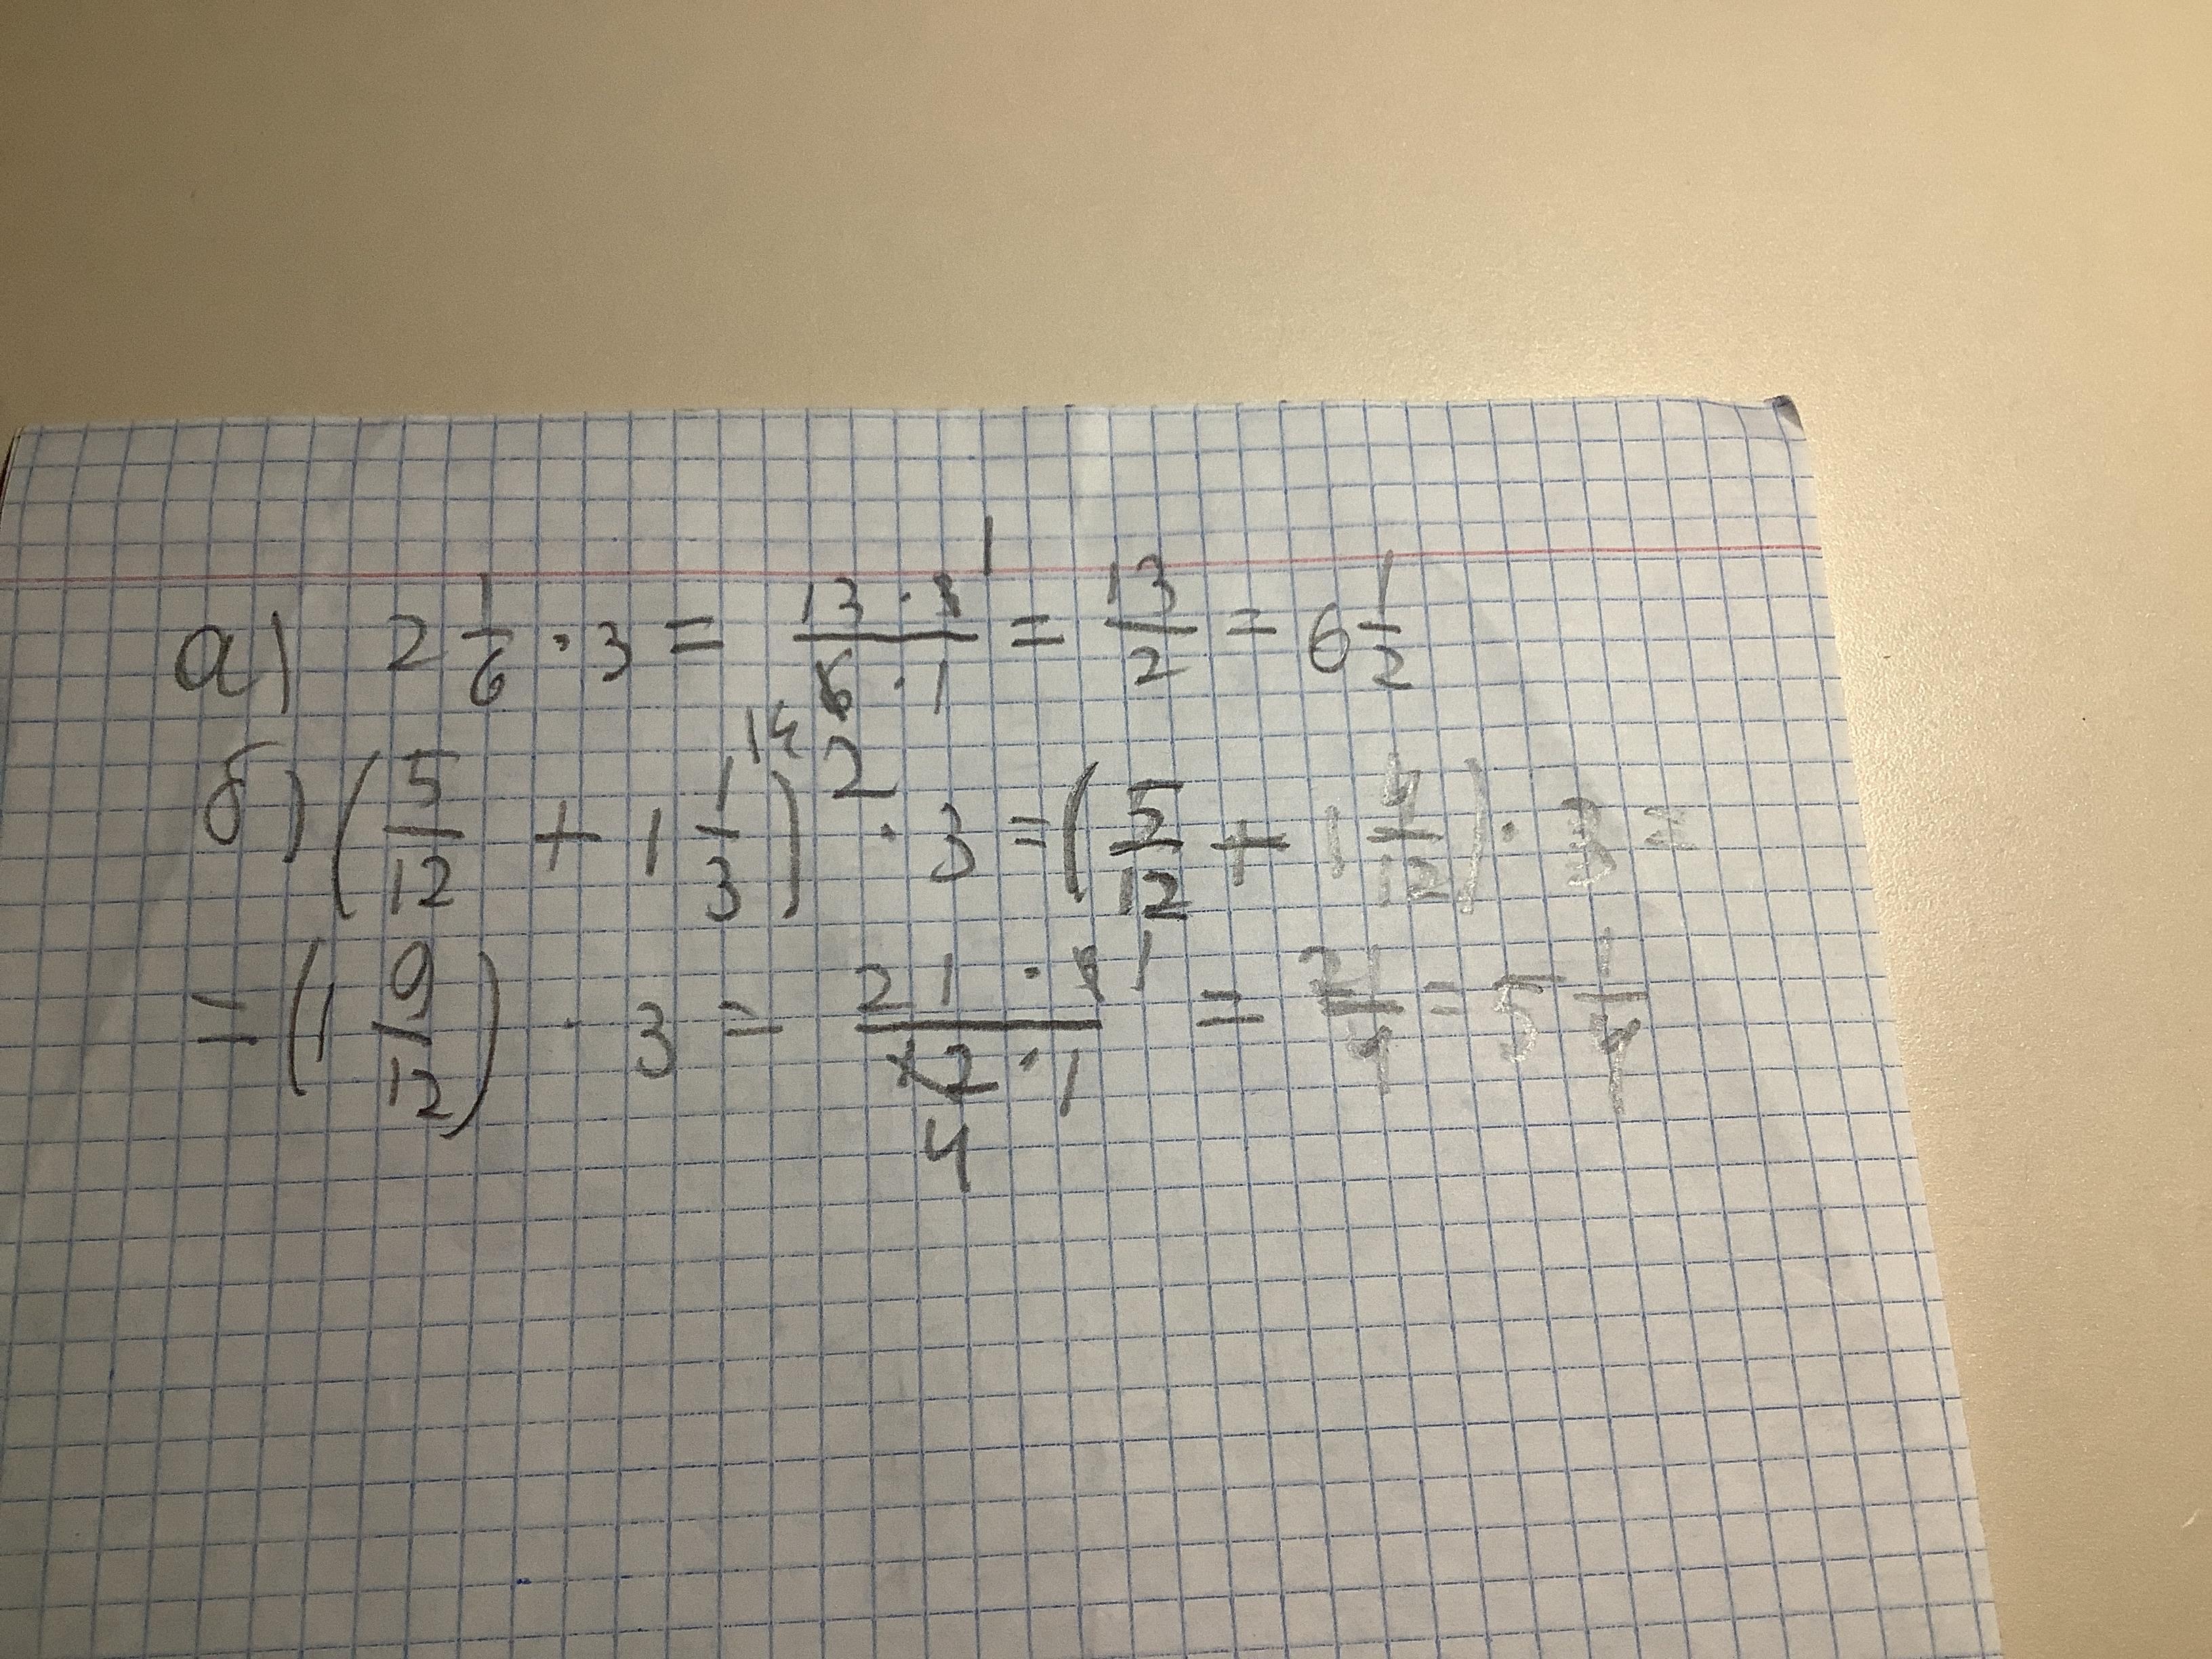 а) 2 1/6 · 3 = 13 · 3 1 / 6 · 1 2 = 13/2 = 6 1/2
б) (5/12 + 1 1/3 \4) · 3 = (5/12 + 1 4/12) · 3 =
= (1 9/12) · 3 = 21 · 3 1 / 12 · 1 4 = 21/4 = 5 1/4